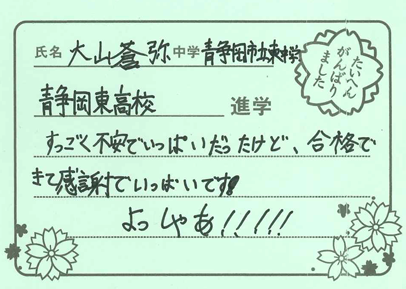 氏名 大山蒼弥 中学 青静岡市立東中学
たいへん
がんばり
ました
青静岡東高校 進学
すっごく不安でいっぱいだったけど、合格で
きて感謝でいっぱいです!
よっしゃあ!!!!!